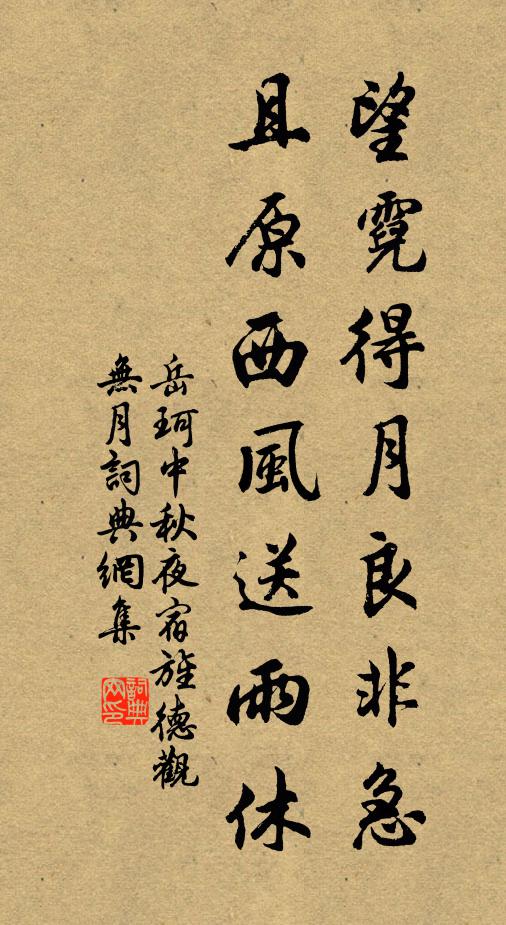 望霓得月良非急
且原西風送雨休
岳珂中秋夜宿旌德觀
無月詞典網集
詞典
網印